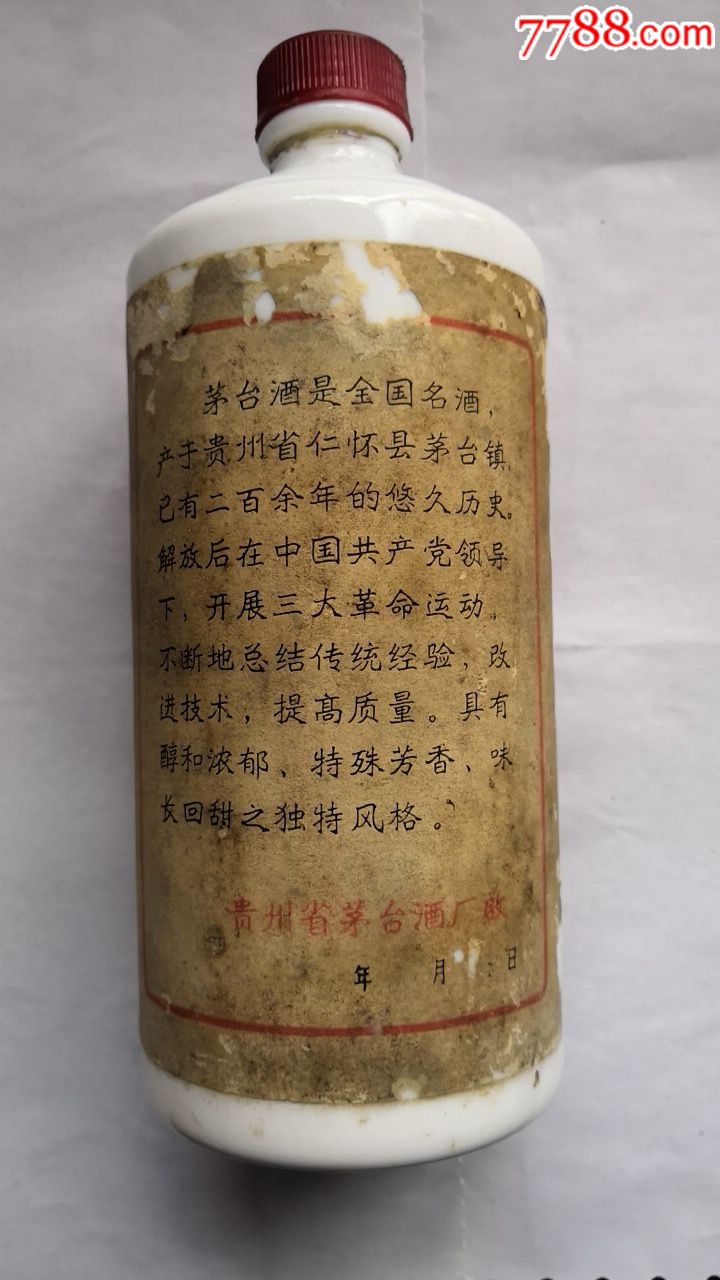 7788.com
茅台酒是全国名酒，
产于贵州省仁怀县茅台镇，
已有二百余年的悠久历史。
解放后在中国共产党领导
下，开展三大革命运动，
不断地总结传统经验，改
进技术，提高质量。具有
醇和浓郁、特殊芳香、味
长回甜之独特风格。
贵州省茅台酒厂啟
年 月 日